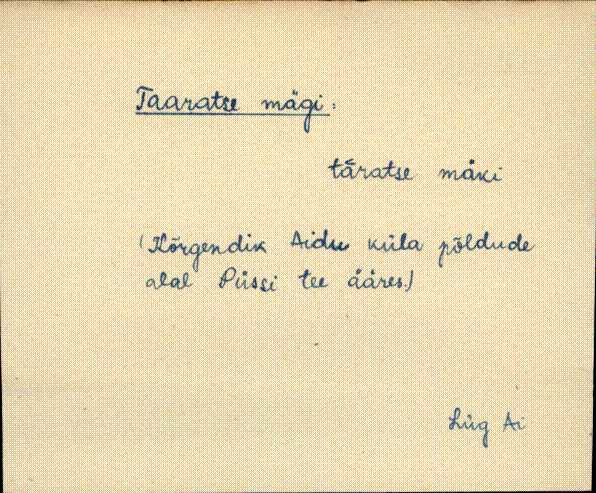 Taaratse mägi:
tāratse mäki
(Kõrgendik Aidu küla põldude
alal Püssi tee ääres.)
Lüg Ai